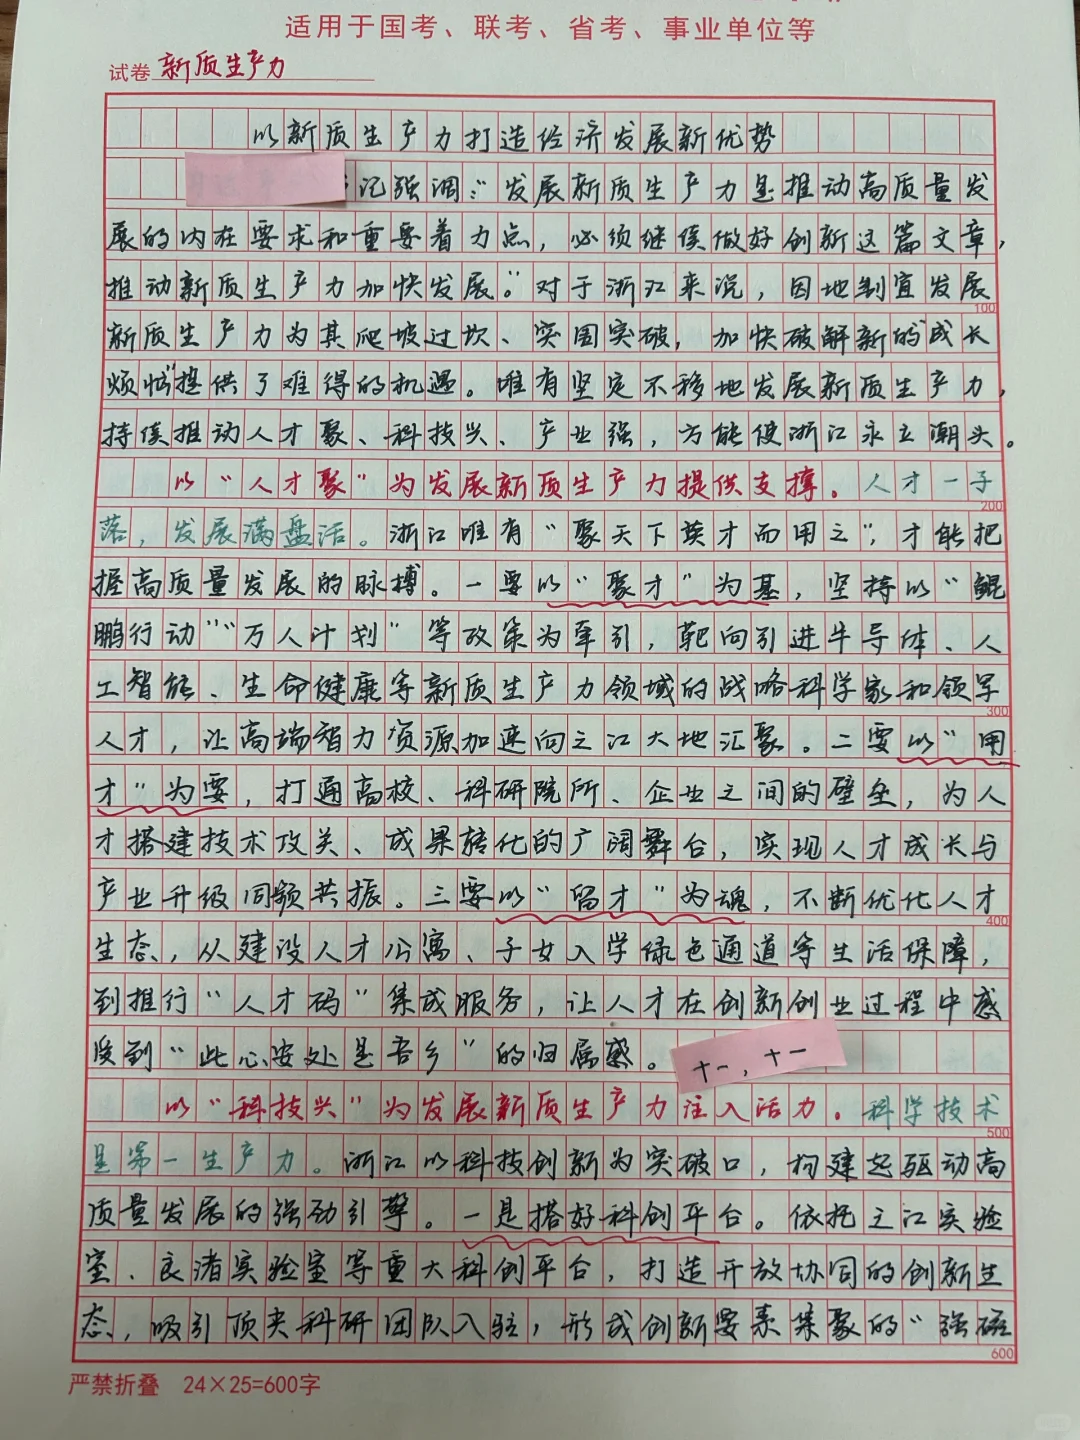 适用于国考、联考、省考、事业单位等
试卷 新质生产力
以新质生产力打造经济发展新优势
记强调:“发展新质生产力是推动高质量发
展的内在要求和重要着力点，必须继续做好创新这篇文章，
推动新质生产力加快发展。”对于浙江来说，因地制宜发展
100
新质生产力为其爬坡过坎、突围突破，加快破解新的“成长
烦恼”提供了难得的机遇。唯有坚定不移地发展新质生产力，
持续推动人才聚、科技兴、产业强，方能使浙江永立潮头。
以“人才聚”为发展新质生产力提供支撑。人才一子
200
落，发展满盘活。浙江唯有“聚天下英才而用之”，才能把
握高质量发展的脉搏。一要以“聚才”为基，坚持以“鲲
鹏行动”“万人计划”等政策为牵引，靶向引进半导体、人
工智能、生命健康等新质生产力领域的战略科学家和领军
300
人才，让高端智力资源加速向之江大地汇聚。二要以“用
才”为要，打通高校、科研院所、企业之间的壁垒，为人
才搭建技术攻关、成果转化的广阔舞台，实现人才成长与
产业升级同频共振。三要以“留才”为魂，不断优化人才
400
生态，从建设人才公寓、子女入学绿色通道等生活保障，
到推行“人才码”集成服务，让人才在创新创业过程中感
受到“此心安处是吾乡”的归属感。
十一，十一
以“科技兴”为发展新质生产力注入活力。科学技术
500
是第一生产力。浙江以科技创新为突破口，构建起驱动高
质量发展的强劲引擎。一是搭好科创平台。依托之江实验
室、良渚实验室等重大科创平台，打造开放协同的创新生
态，吸引顶尖科研团队入驻，形成创新要素集聚的“强磁
600
严禁折叠 24×25=600字